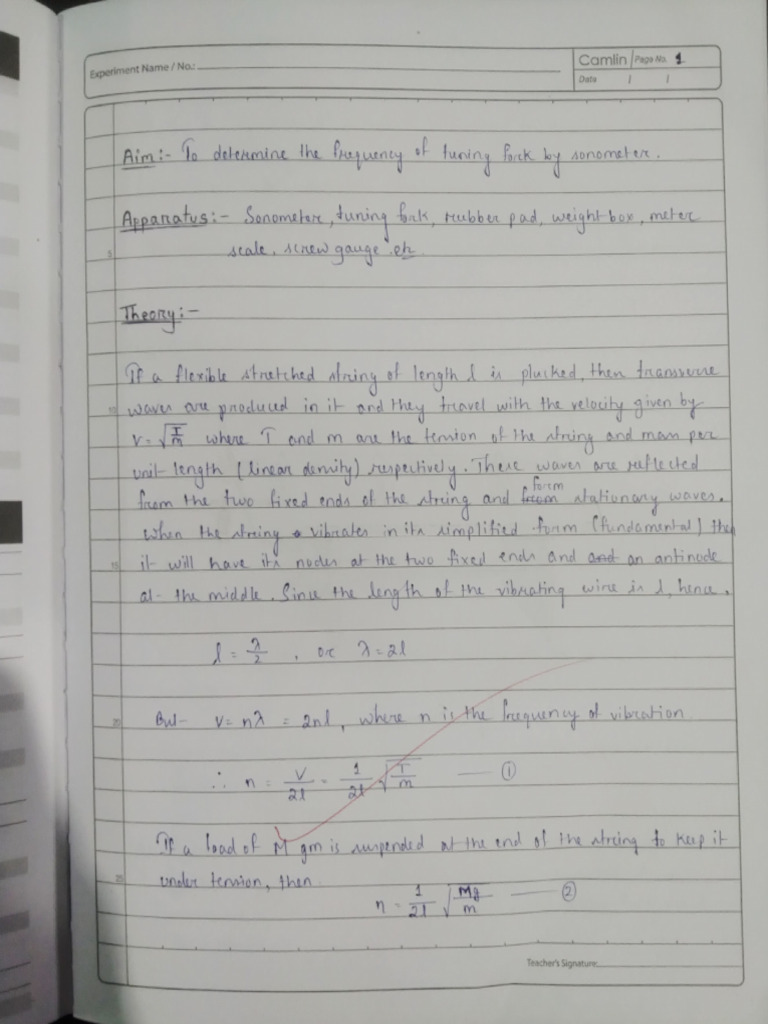 Experiment Name / No.:
Camlin Page No. 1
Date / /
Aim:- To determine the frequency of tuning fork by sonometer.
Apparatus:- Sonometer, tuning fork, rubber pad, weight box, meter
5 scale, screw gauge etc
Theory:-
If a flexible stretched string of length l is plucked, then transverse
10 waves are produced in it and they travel with the velocity given by
v = √(T/m) where T and m are the tension of the string and mass per
unit length (linear density) respectively. These waves are reflected
from the two fixed ends of the string and form stationary waves.
when the string vibrates in its simplified form (fundamental) then
15 it will have its nodes at the two fixed ends and and an antinode
at the middle. Since the length of the vibrating wire is l, hence,
l = λ/2 , or λ = 2l
20 But v = nλ = 2nl, where n is the frequency of vibration
∴ n = V/2l = 1/2l √(T/m) — ①
If a load of M gm is suspended at the end of the string to keep it
25 under tension, then
n = 1/2l √(Mg/m) — ②
Teacher's Signature